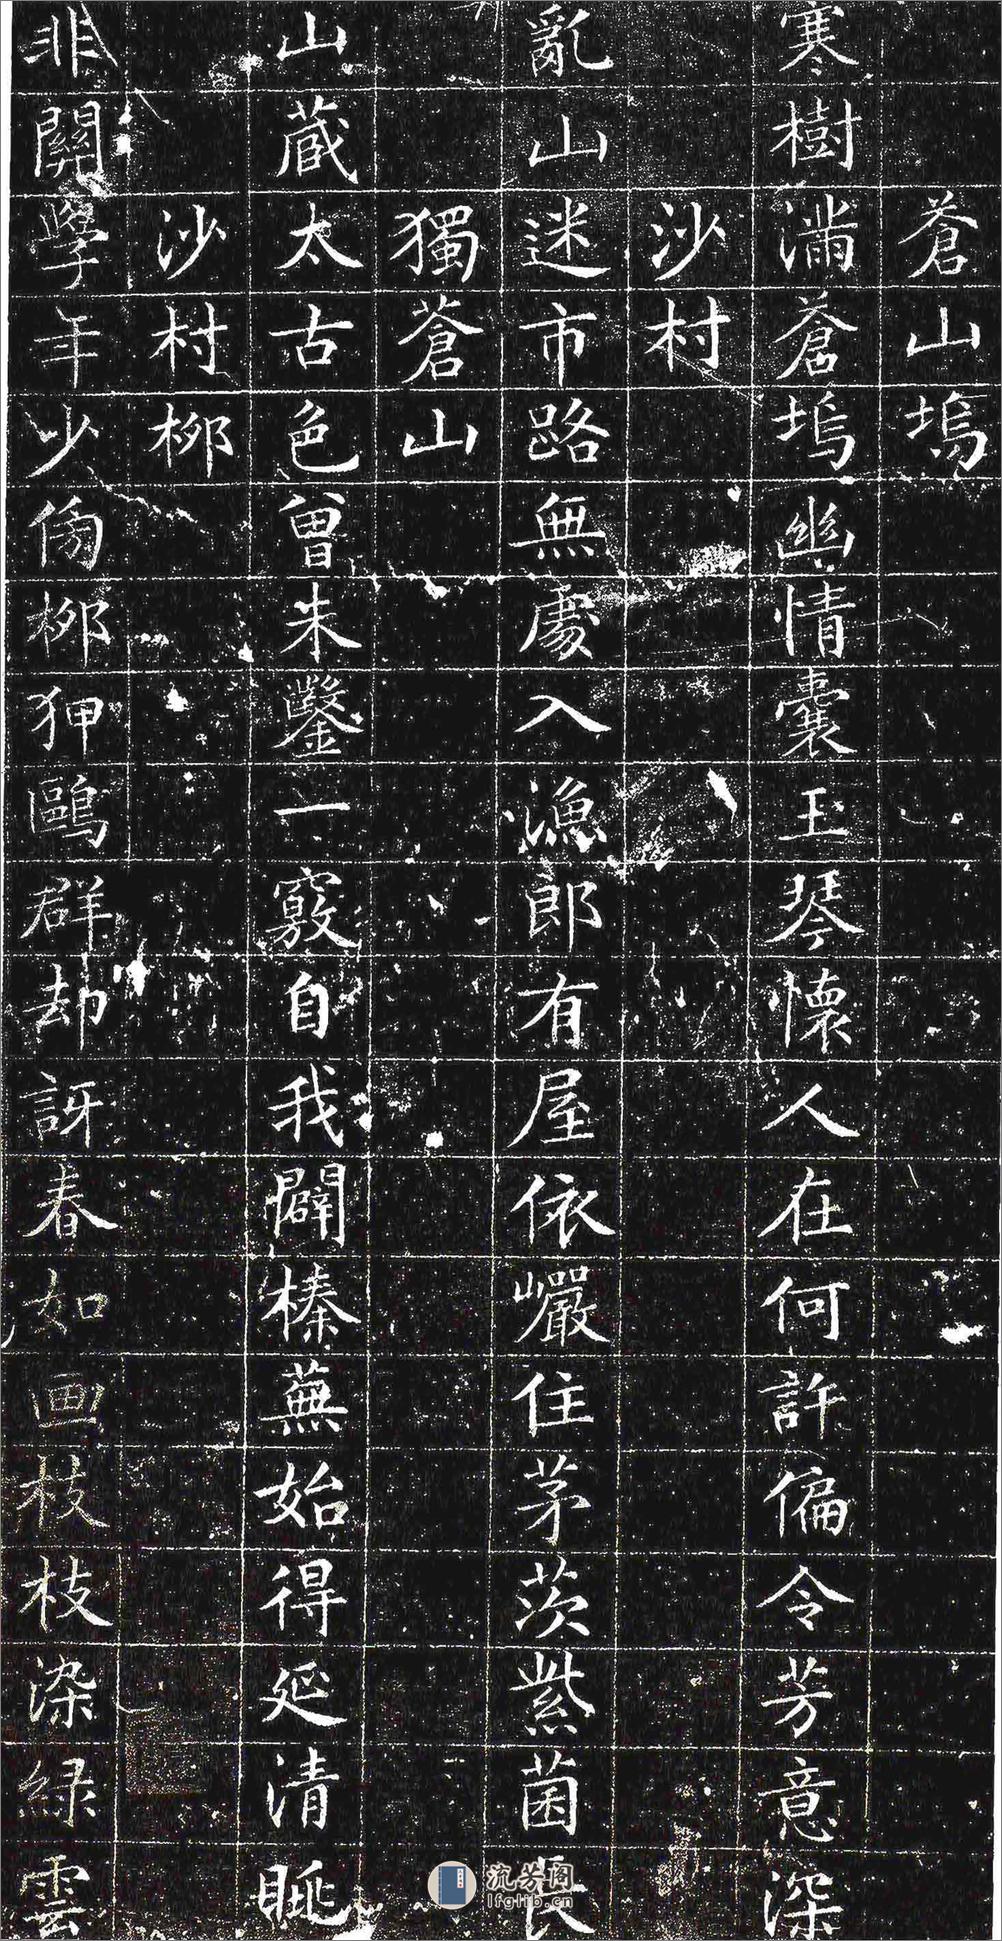 蒼山塢
寒樹滿蒼塢幽情囊玉琴懷人在何許偏令芳意深
沙村
亂山迷市路無處入漁郎有屋依巖住茅茨紫菌長
獨蒼山
山藏太古色曾未鑿一竅自我闢榛蕪始得延清眺
沙村柳
非關學年少傍柳狎鷗群却訝春如画枝枝染綠雲
流芳阁
lfglib.cn